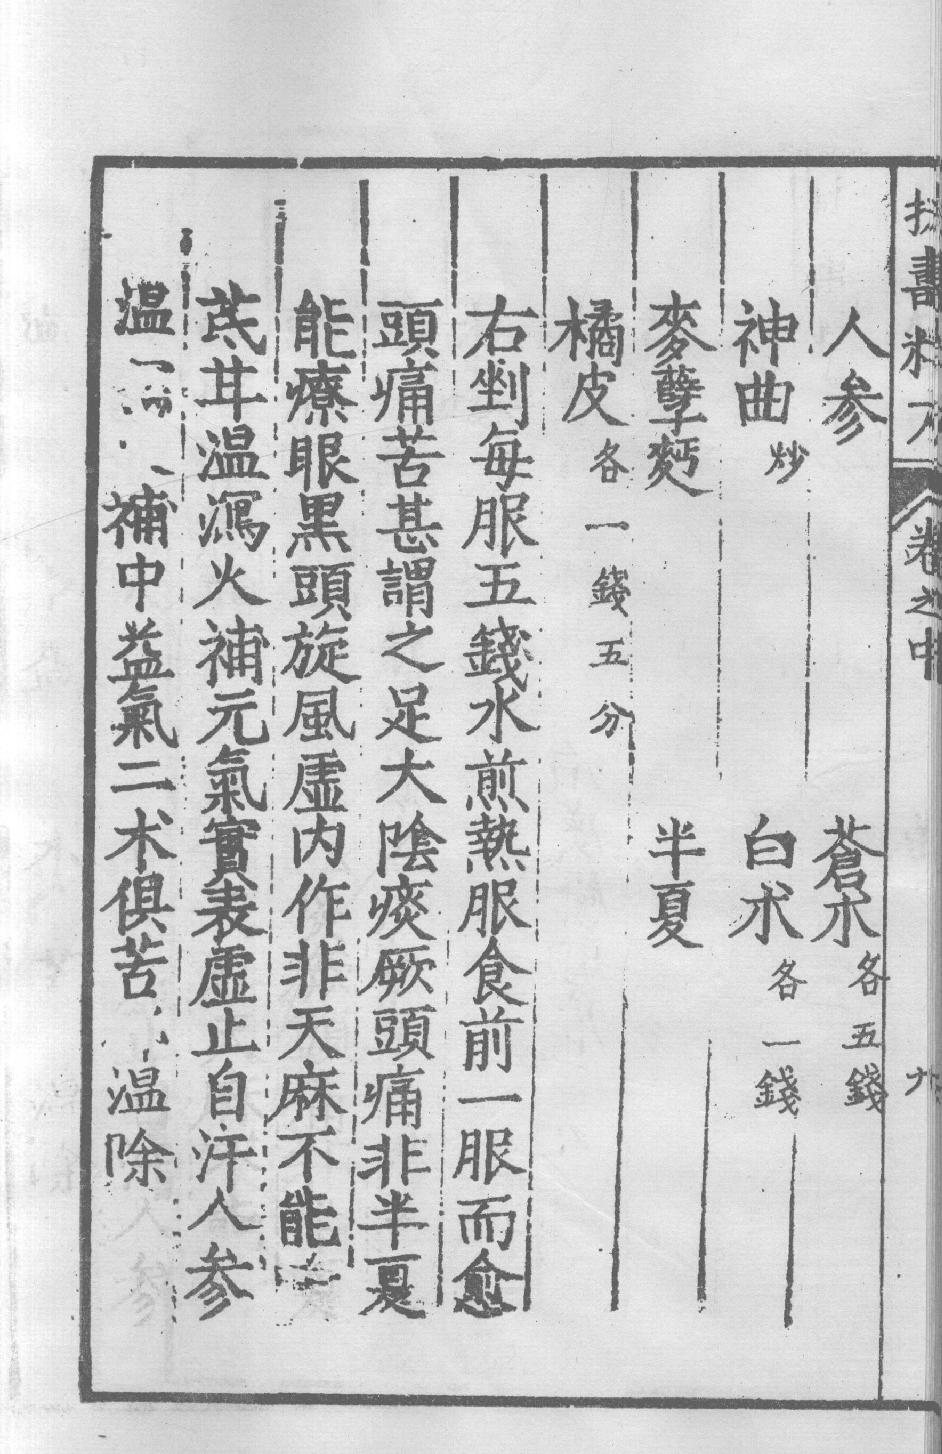 壽
卷之中
九
人参 蒼朮各五錢
神曲炒 白朮各一錢
麥糵麪 半夏
橘皮各一錢五分
右剉每服五錢水煎熱服食前一服而愈
頭痛苦甚謂之足大陰痰厥頭痛非半夏
能療眼黒頭旋風虛内作非天麻不能
芪甘温瀉火補元氣實表虛止自汗人参
温 補中益氣二术俱苦 温除